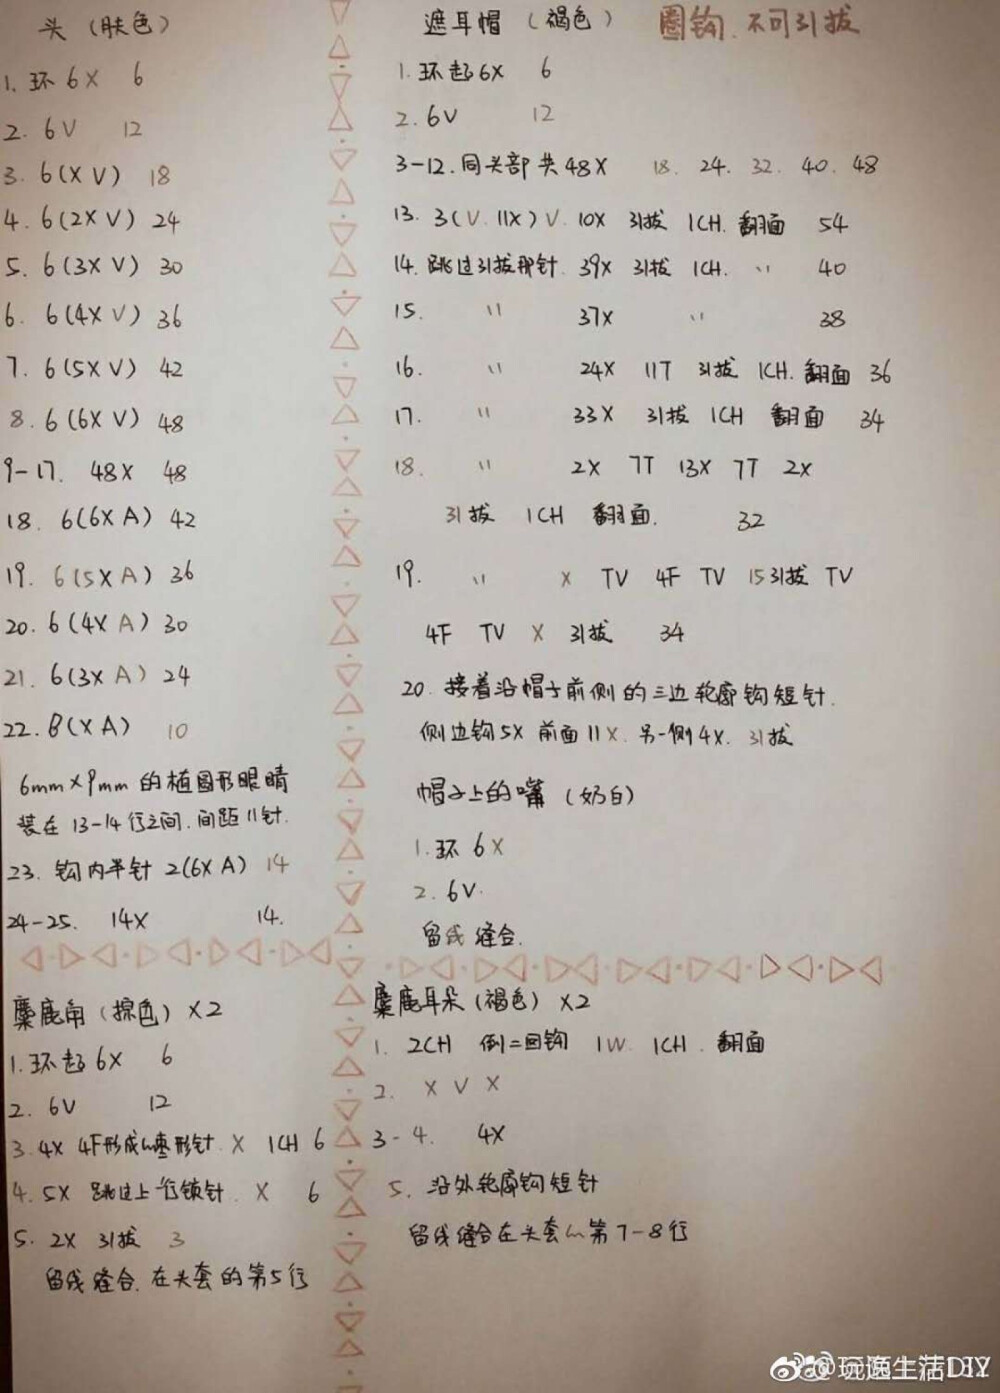 头（肤色）
1. 环 6X 6
2. 6V 12
3. 6(X V) 18
4. 6(2X V) 24
5. 6(3X V) 30
6. 6(4X V) 36
7. 6(5X V) 42
8. 6(6X V) 48
9-17. 48X 48
18. 6(6X A) 42
19. 6(5X A) 36
20. 6(4X A) 30
21. 6(3X A) 24
22. 8(X A) 10
6mm×9mm 的植圆形眼睛
装在 13-14 行之间. 间距 11针.
23. 钩内半针 2(6X A) 14
24-25. 14X 14.
遮耳帽（褐色） 圈钩. 不可引拔
1. 环起 6X 6
2. 6V 12
3-12. 同头部 共 48X 18. 24. 32. 40. 48
13. 3(V. 11X) V. 10X 引拔 1CH. 翻面 54
14. 跳过引拔那针. 39X 引拔 1CH. 〃 40
15. 〃 37X 〃 38
16. 〃 24X 11T 引拔 1CH. 翻面 36
17. 〃 33X 引拔 1CH 翻面 34
18. 〃 2X 7T 13X 7T 2X
引拔 1CH 翻面. 32
19. 〃 X TV 4F TV 15引拔 TV
4F TV X 引拔 34
20. 接着沿帽子前侧的三边轮廓钩短针.
侧边钩 5X 前面 11X. 另一侧 4X. 引拔
帽子上的嘴（奶白）
1. 环 6X
2. 6V.
留线缝合.
麋鹿角（棕色）X2
1. 环起 6X 6
2. 6V 12
3. 4X 4F形成的枣形针. X 1CH 6
4. 5X 跳过上一行锁针. X 6
5. 2X 引拔 3
留线缝合. 在头套的第5行
麋鹿耳朵（褐色）X2
1. 2CH 倒二回钩 1W. 1CH. 翻面
2. X V X
3-4. 4X
5. 沿外轮廓钩短针
留线缝合在头套的第7-8行